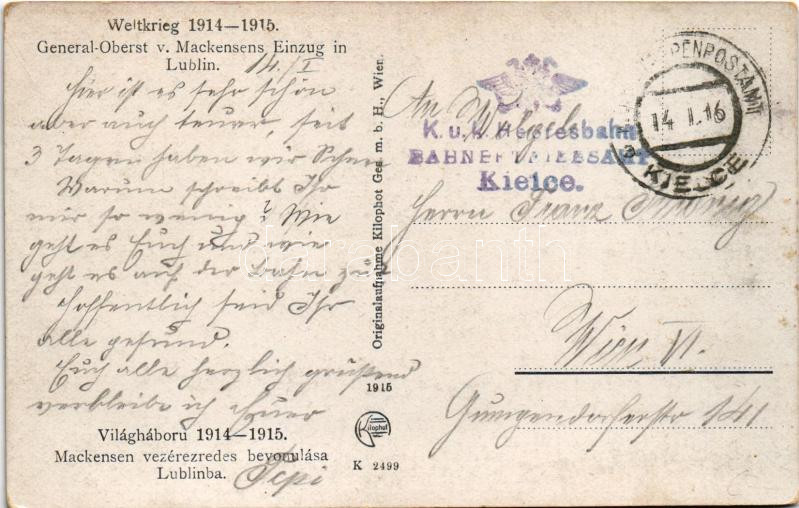 Weltkrieg 1914—1915.
General-Oberst v. Mackensens Einzug in
Lublin.
14./I
Hier ist es sehr schön
aber auch teuer, seit
3 Tagen haben wir Schnee
Warum schreibt Ihr
mir so wenig? Wie
geht es Euch und wie
geht es auf der Bahn zu
Hoffentlich seid Ihr
alle gesund.
Euch alle herzlich grüßend
verbleibe ich Euer
Pepi
Világháboru 1914—1915.
Mackensen vezérezredes bevonulása
Lublinba.
Originalaufnahme Kilophot Ges. m. b. H., Wien.
1915
Kilophot
K 2499
K.u.k. Heeresbahn
BAHNBETRIEBSAMT
Kielce.
ETAPPENPOSTAMT
14. I. 16
a
KIELCE
An
Herrn Franz
Wien VI.
Gumpendorferstr 141
darabanth